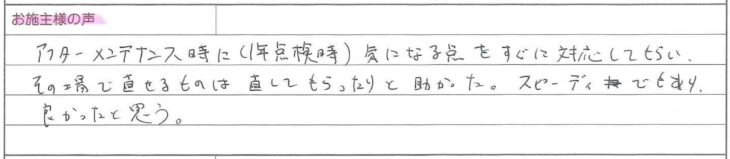 お施主様の声
アフターメンテナンス時に(1年点検時)気になる点をすぐに対応してもらい、
その場で直せるものは直してもらったりと助かった。スピーディーでもあり、
良かったと思う。